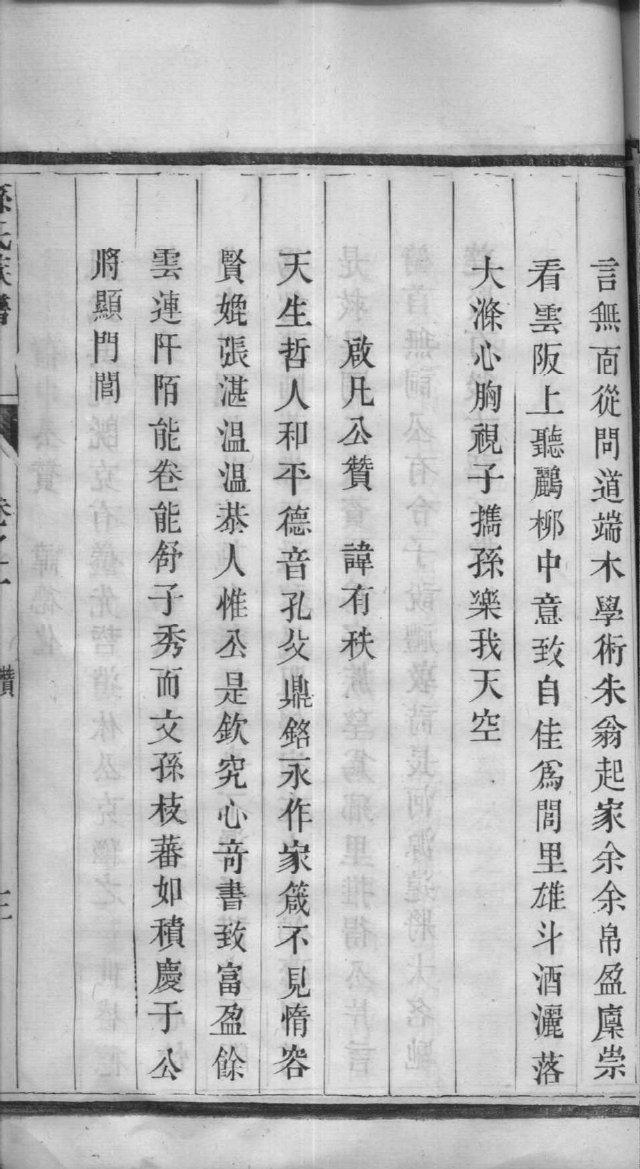 言無面從問道端木學術朱翁起家余余帛盈廩崇
看雲阪上聽鸝柳中意致自佳爲閭里雄斗酒灑落
大滌心胸視子擕孫樂我天空
啟凡公贊　諱有秩
天生哲人和平德音孔父鼎銘永作家箴不見惰容
賢媲張湛温温恭人惟公是欽究心奇書致富盈餘
雲連阡陌能卷能舒子秀而文孫枝蕃如積慶于公
將顯門閭
孫氏族譜　卷之　贊